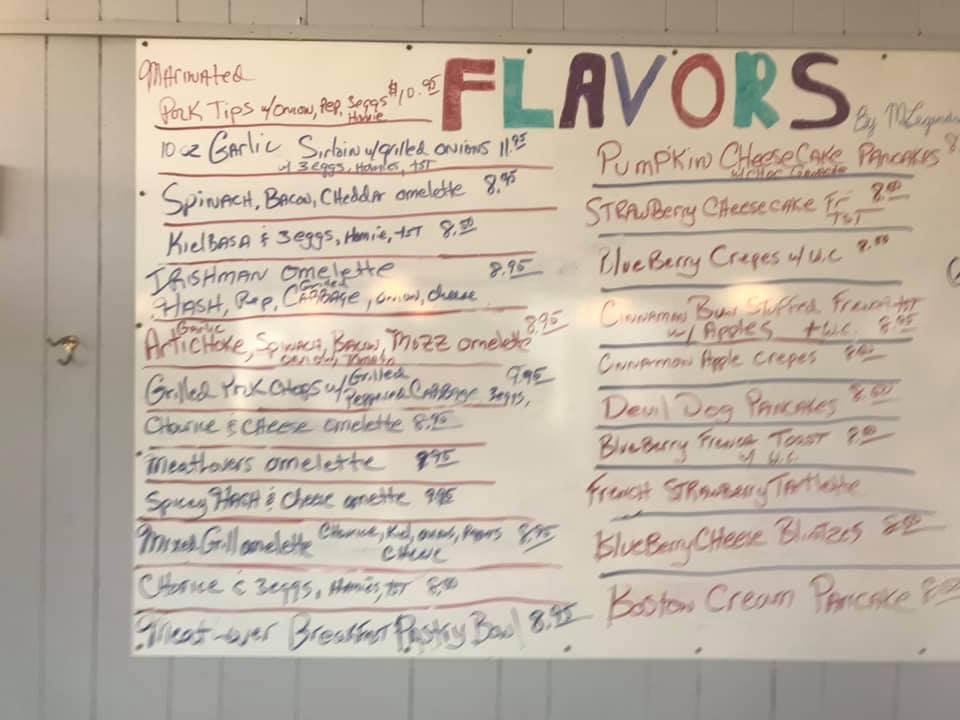 FLAVORS
By
Marinated
Pork Tips w/onion, Pep, 3eggs $10.95
Homie
10 oz Garlic Sirloin w/grilled onions 11.95
w/ 3eggs, Homies, tst
Spinach, Bacon, Cheddar omelette 8.95
Kielbasa & 3eggs, Homie, tst 8.50
Irishman omelette 8.95
Grilled
Hash, Pep, Cabbage, onion, cheese
Garlic
Artichoke, Spinach, Bacon, Mozz omelette 8.95
Tomato
Grilled Pork Chops w/Grilled 9.95
Peppered Cabbage 3eggs,
Chorice & Cheese omelette 8.95
Meatlovers omelette 8.95
Spicey Hash & Cheese omette 9.95
Mixed Grill omelette Chorice, Kiel, onions, Peppers 8.95
Cheese
Chorice & 3eggs, Homies, tst 8.50
Breakfast Pastry Bowl 8.95
Pumpkin Cheesecake Pancakes 8
Strawberry Cheesecake Fr 8.00
TST
BlueBerry Crepes w/ W.C 8.00
Cinnaman Bun Stuffed French tst
w/ Apples + W.C. 8.95
Cinnamon Apple Crepes 8.00
Devil Dog Pancakes 8.00
BlueBerry French Toast 8.00
w/ W.C.
French Strawberry Tartlette
BlueBerry Cheese Blintzes 8.00
Boston Cream Pancake 8.00